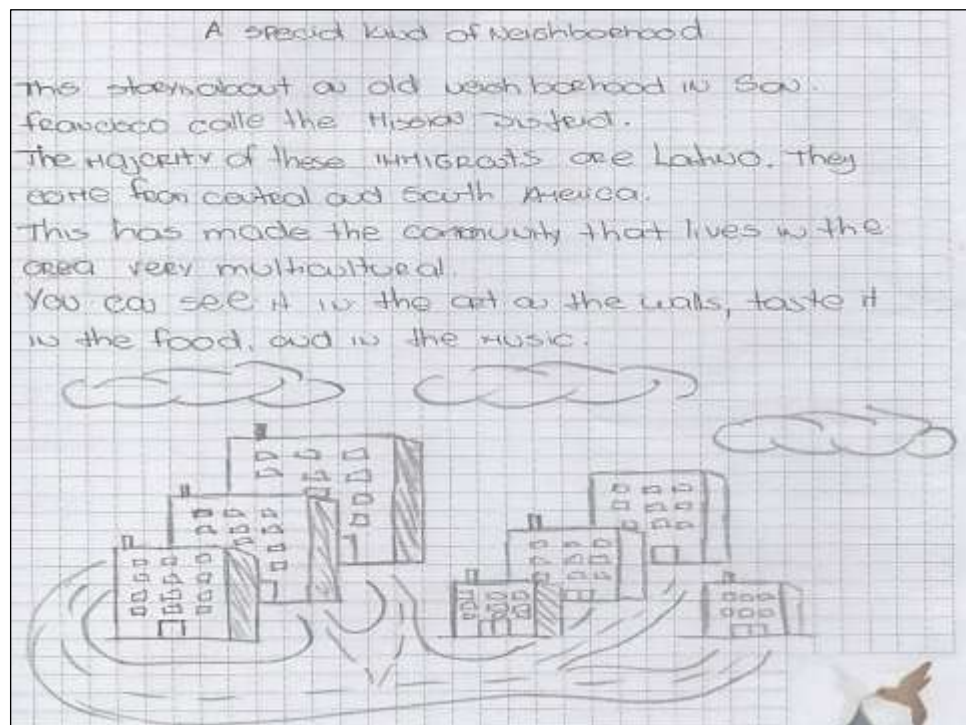 A special kind of Neighborhood
This story about an old neighborhood in San.
francisco calle the Mission District.
The Majority of these IMMIGRANTS are Latino. They
come from central and South America.
This has made the community that lives in the
area very multicultural.
You can see it in the art on the walls, taste it
in the food, and in the music.